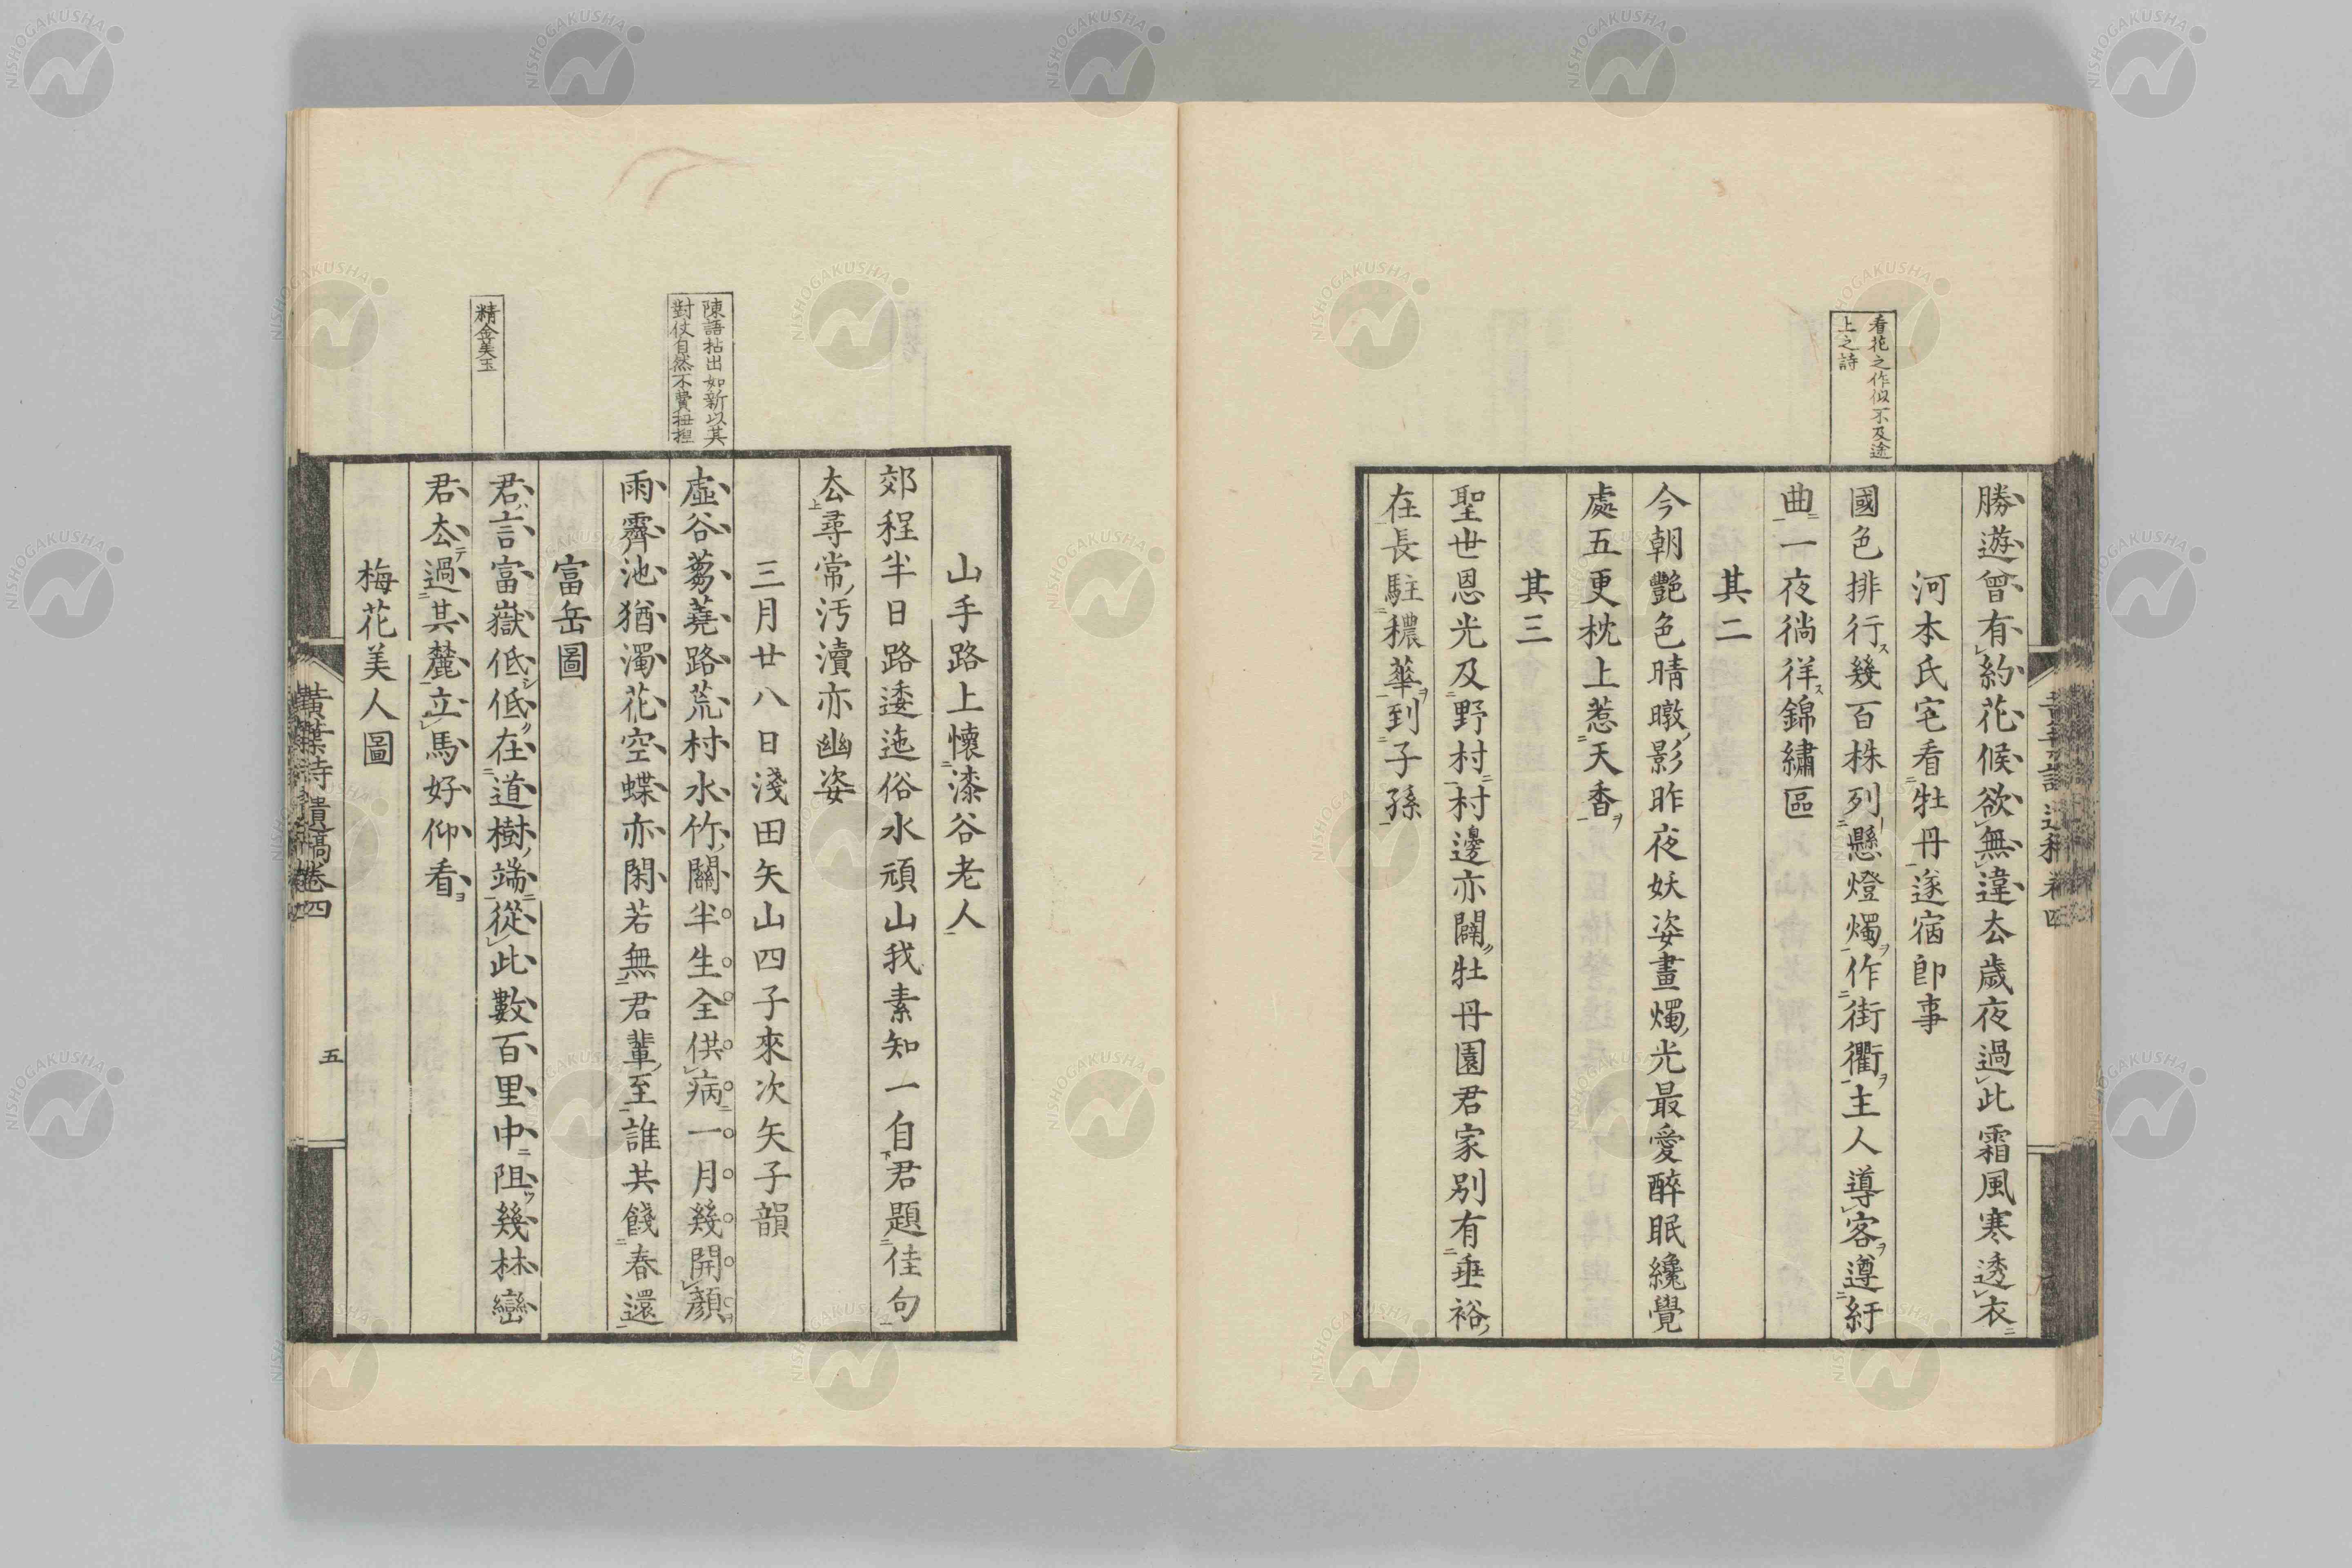 看花之作似不及途
上之詩
勝遊曾有約花候欲無違厺歲夜過此霜風寒透衣
河本氏宅看牡丹遂宿卽事
國色排行幾百株列懸燈燭作街衢主人導客遵紆
曲一夜徜徉錦繡區
其二
今朝艷色晴暾影昨夜妖姿畫燭光最愛醉眠纔覺
處五更枕上惹天香
其三
聖世恩光及野村村邊亦闢牡丹園君家別有垂裕
在長駐穠華到子孫
山手路上懷漆谷老人
郊程半日路逶迤俗水頑山我素知一自君題佳句
厺尋常汚瀆亦幽姿
三月廿八日淺田矢山四子來次矢子韻
陳語拈出如新以其
對仗自然不費扭捏
虛谷蒭蕘路荒村水竹關半生全供病一月幾開顏
雨霽池猶濁花空蝶亦閑若無君輩至誰共餞春還
富岳圖
精金美玉
君言富嶽低低在道樹端從此數百里中阻幾林巒
君厺過其麓立馬好仰看
梅花美人圖
黃葉詩遺稿卷四
五
NISHOGAKUSHA